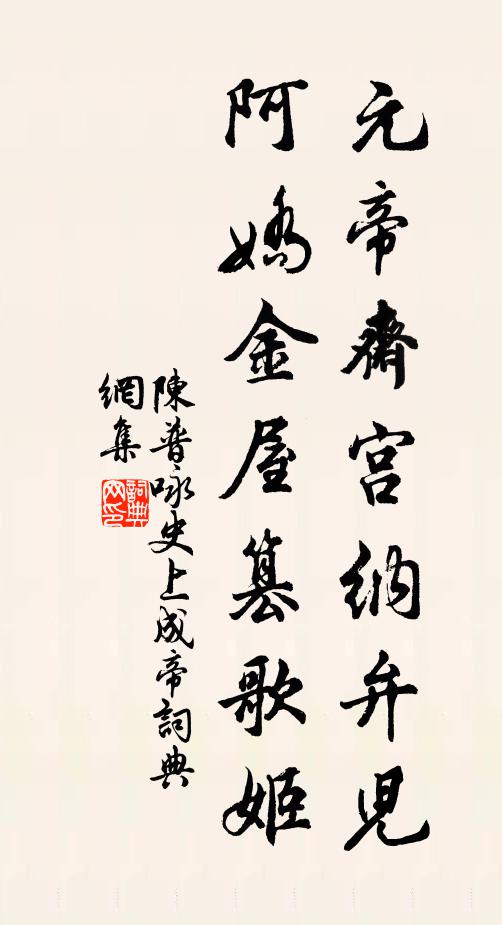 元帝齋宮納弁児
阿嬌金屋篡歌姬
陳普咏史上成帝詞典
網集
詞典
网印